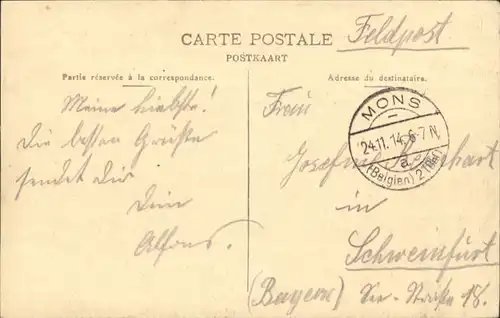 CARTE POSTALE
POSTKAART
Feldpost.
Partie réservée à la correspondance.
Adresse du destinataire.
Meine Liebste!
Die besten Grüße
sendet Dir
Dein
Alfons.
MONS
24.11.14.6-7N.
a
(Belgien)
Frau
Josefine
in
Schweinfurt
(Bayern) 18.